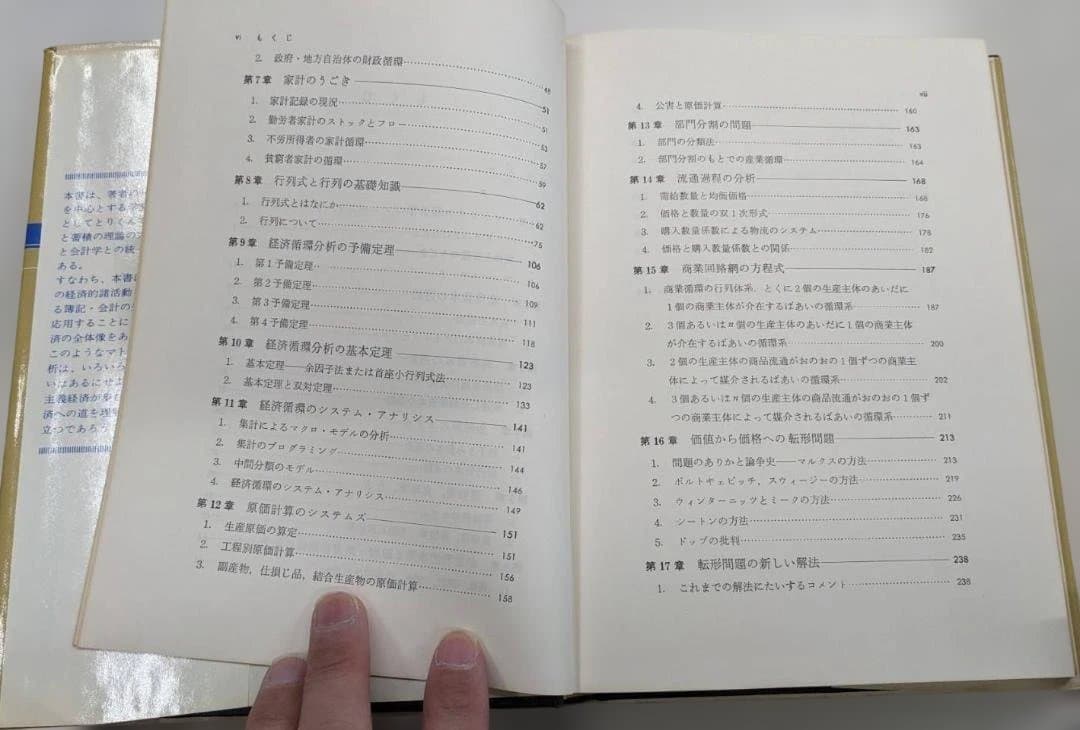 本書は、著者の
を中心とする学
としてとりくん
と蓄積の理論の
と会計学との統
ある。
すなわち、本書は
の経済的諸活動
る簿記・会計の
応用することに
済の全体像をあ
このようなマト
析は、いろいろ
いはあるにせよ
主義経済が
済への道を理
立つであろう
vi もくじ
2. 政府・地方自治体の財政循環 48
第7章 家計のうごき 51
1. 家計記録の現況 51
2. 勤労者家計のストックとフロー 53
3. 不労所得者の家計循環 57
4. 貧窮者家計の循環 59
第8章 行列式と行列の基礎知識 62
1. 行列式とはなにか 62
2. 行列について 75
第9章 経済循環分析の予備定理 106
1. 第1予備定理 106
2. 第2予備定理 109
3. 第3予備定理 111
4. 第4予備定理 118
第10章 経済循環分析の基本定理 123
1. 基本定理——余因子法または首座小行列式法 123
2. 基本定理と双対定理 133
第11章 経済循環のシステム・アナリシス 141
1. 集計によるマクロ・モデルの分析 141
2. 集計のプログラミング 144
3. 中間分類のモデル 146
4. 経済循環のシステム・アナリシス 149
第12章 原価計算のシステムズ 151
1. 生産原価の算定 151
2. 工程別原価計算 156
3. 副産物，仕損じ品，結合生産物の原価計算 158
vii
4. 公害と原価計算 160
第13章 部門分割の問題 163
1. 部門の分類法 163
2. 部門分割のもとでの産業循環 164
第14章 流通過程の分析 168
1. 需給数量と均価価格 168
2. 価格と数量の双1次形式 176
3. 購入数量係数による物流のシステム 178
4. 価格と購入数量係数との関係 182
第15章 商業回路網の方程式 187
1. 商業循環の行列体系，とくに2個の生産主体のあいだに
1個の商業主体が介在するばあいの循環系 187
2. 3個あるいはn個の生産主体のあいだに1個の商業主体
が介在するばあいの循環系 200
3. 2個の生産主体の商品流通がおのおの1個ずつの商業主
体によって媒介されるばあいの循環系 202
4. 3個あるいはn個の生産主体の商品流通がおのおの1個ず
つの商業主体によって媒介されるばあいの循環系 211
第16章 価値から価格への転形問題 213
1. 問題のありかと論争史——マルクスの方法 213
2. ボルトケビッチ，スウィージーの方法 219
3. ウィンターニッツとミークの方法 226
4. シートンの方法 231
5. ドップの批判 235
第17章 転形問題の新しい解法 238
1. これまでの解法にたいするコメント 238